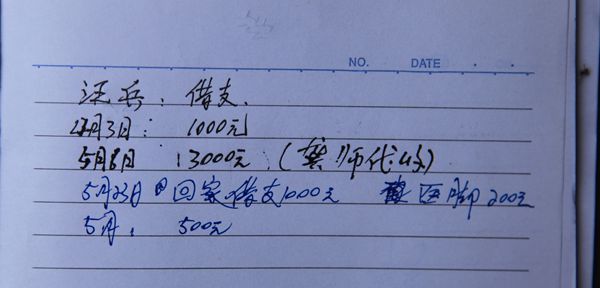 NO. DATE
汪兵：借支.
4月3日： 1000元
5月8日 :3000元.(龚师代收)
5月23日 回家借支1000元 医脚200元
5月. 500元